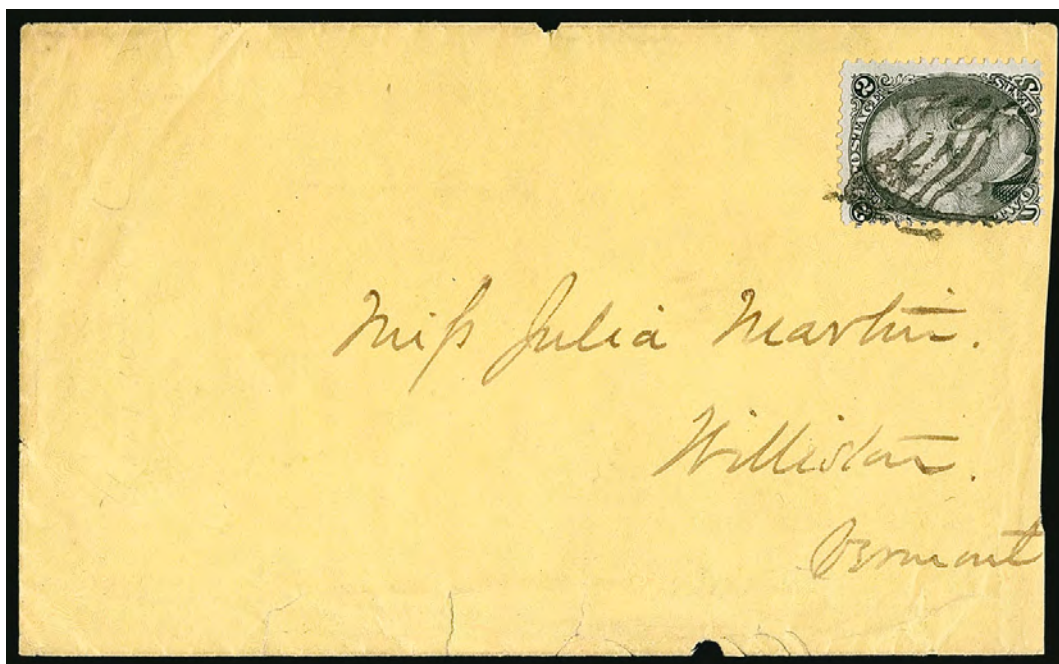 2 STAMP
POSTAGE
TWO
Miſs Julia Martin.
Williston.
Vermont